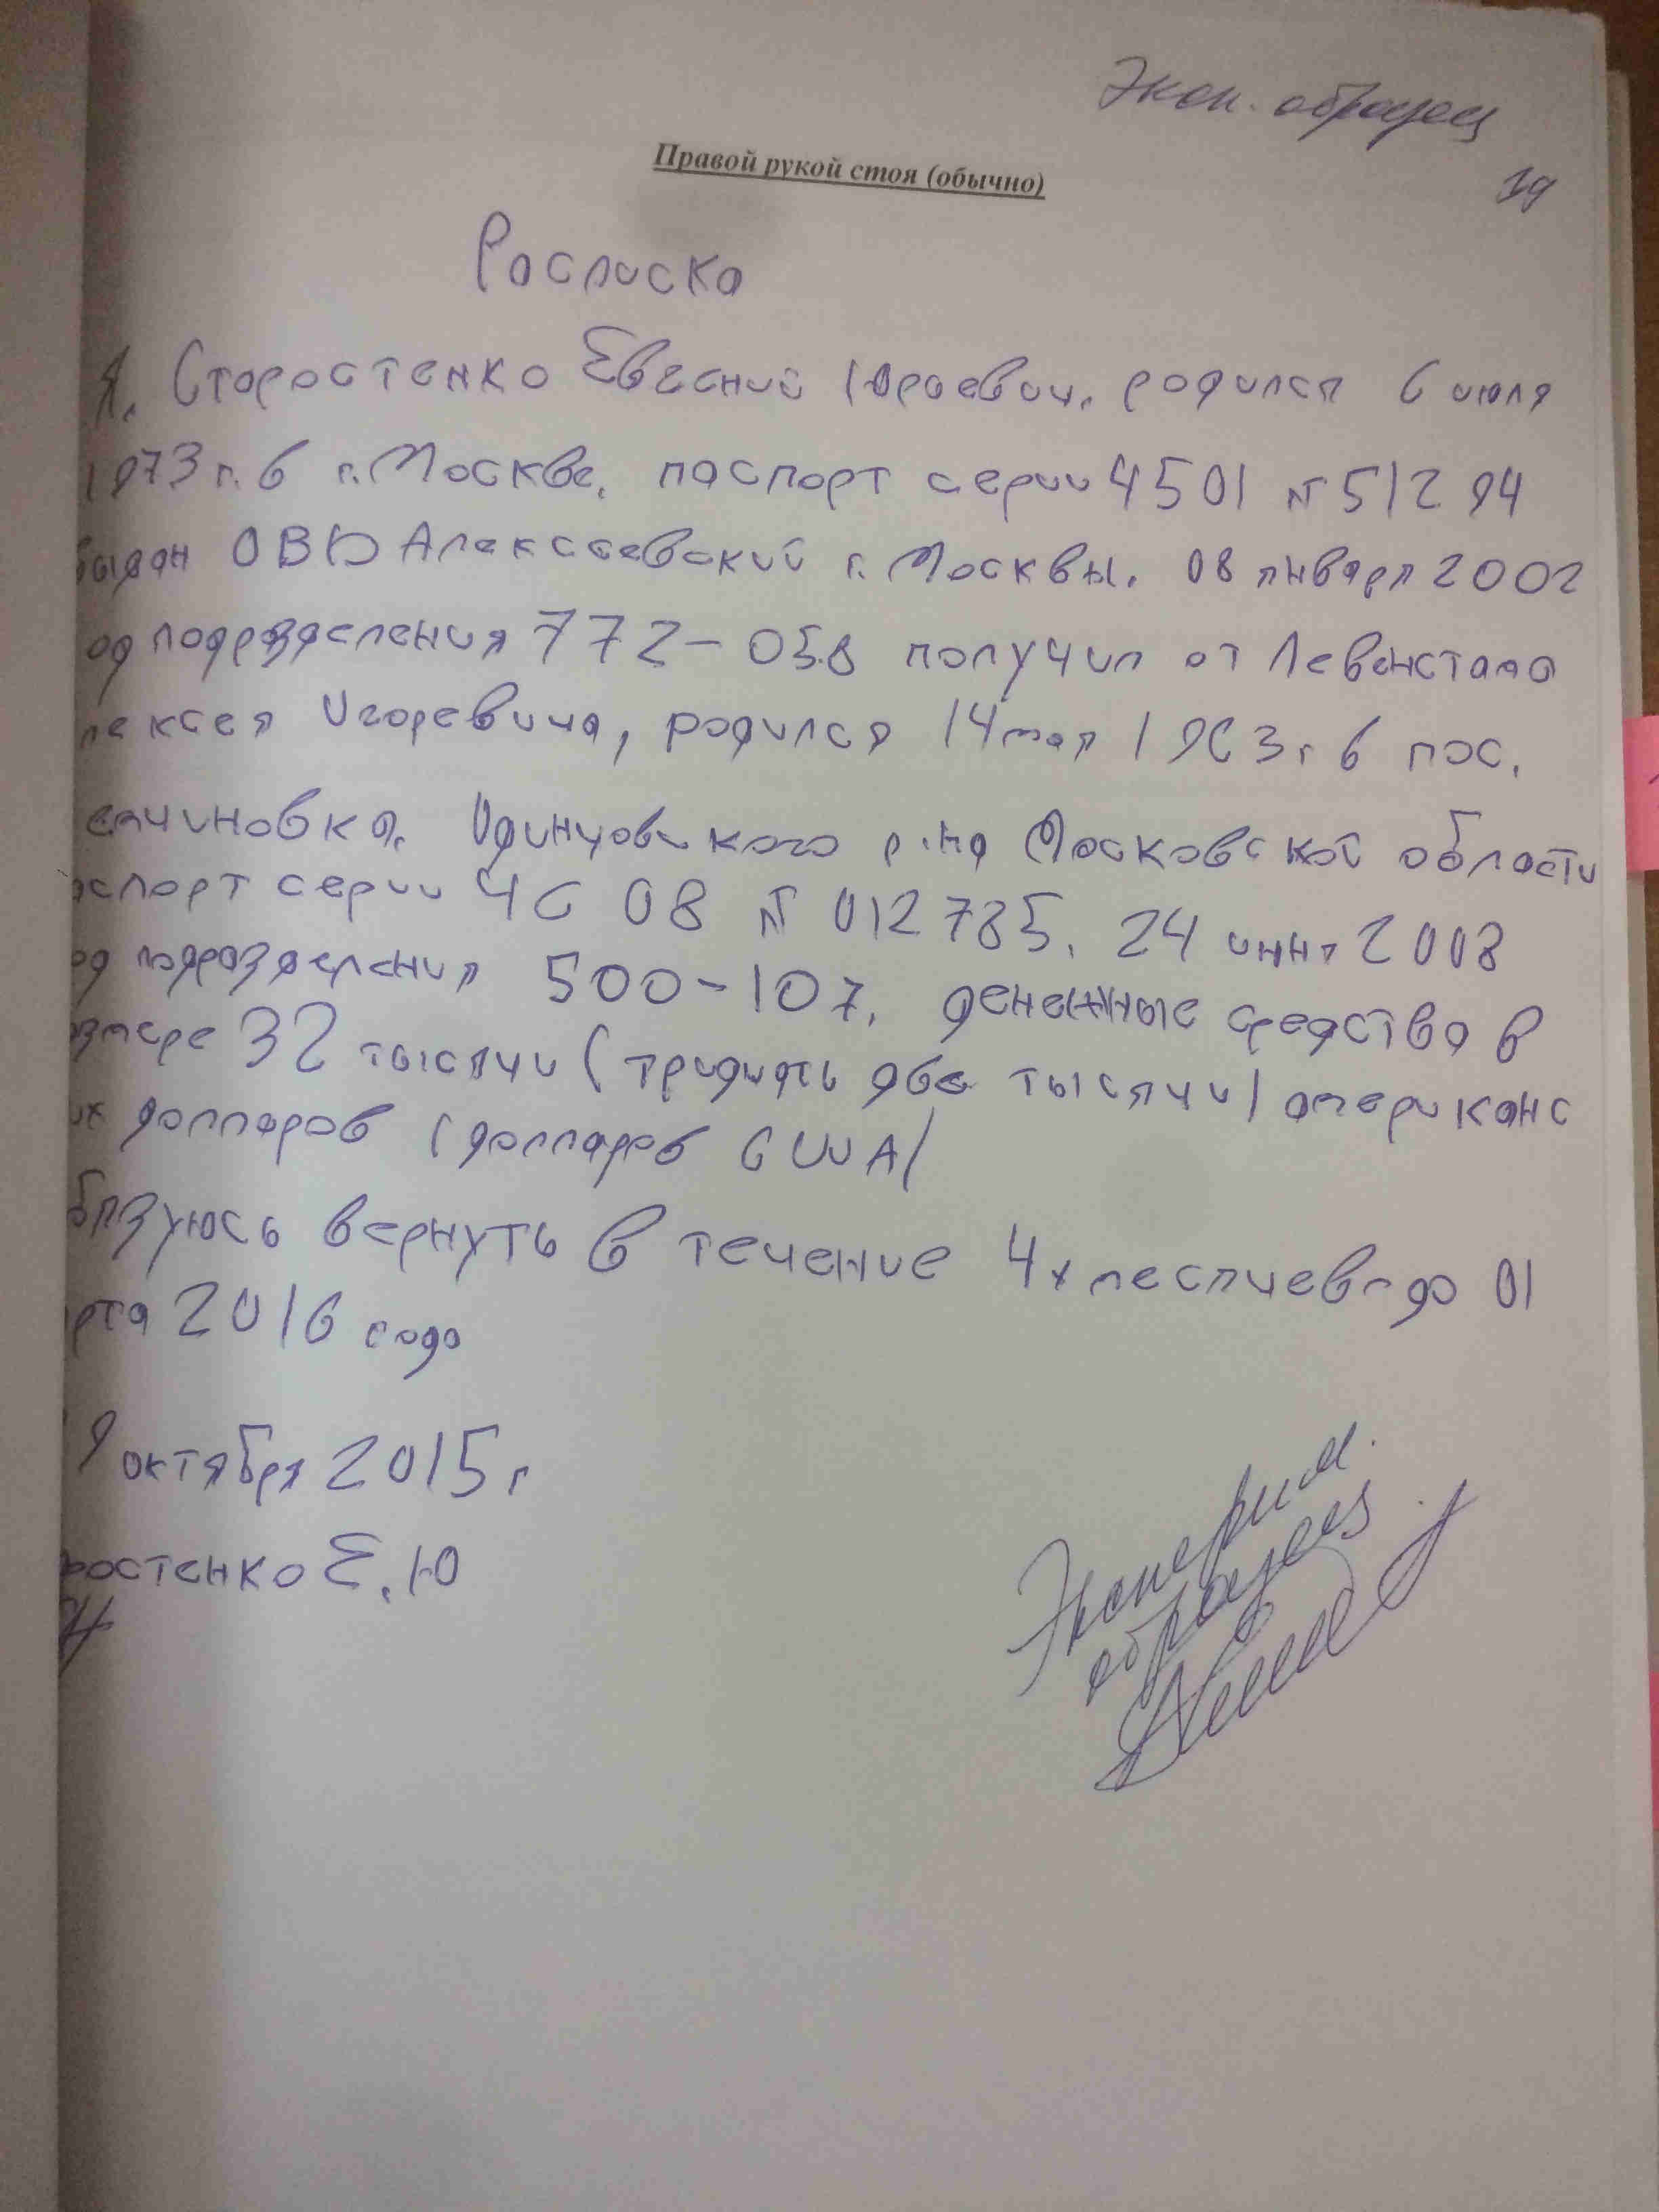 Эксп. образец
19
Правой рукой стоя (обычно)
Росписка
Я. Старостенко Евгений Юрьевич. родился 6 июля
1973 г. в г. Москве. паспорт серии 4501 № 51294
выдан ОВД Алексеевский г. Москвы. 08 января 2002
од подразделения 772-058 получил от Левенстама
лексея Игоревича, родился 14 мая 1963 г в пос.
Одинцовского р-на Московской области
аспорт серии 46 08 № 012785. 24 июня 2008
од подразделения 500-107. денежные средства в
азмере 32 тысячи (тридцать две тысячи) американс
их долларов (долларов США)
бязуюсь вернуть в течение 4х месяцев-до 01
рта 2016 года
9 октября 2015 г
ростенко Е.Ю
Эксперим.
образец